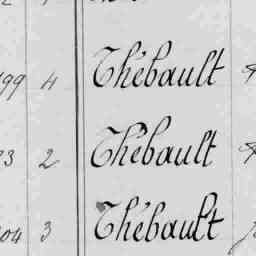 99 4 Thébault
3 2 Thébault
04 3 Thébault